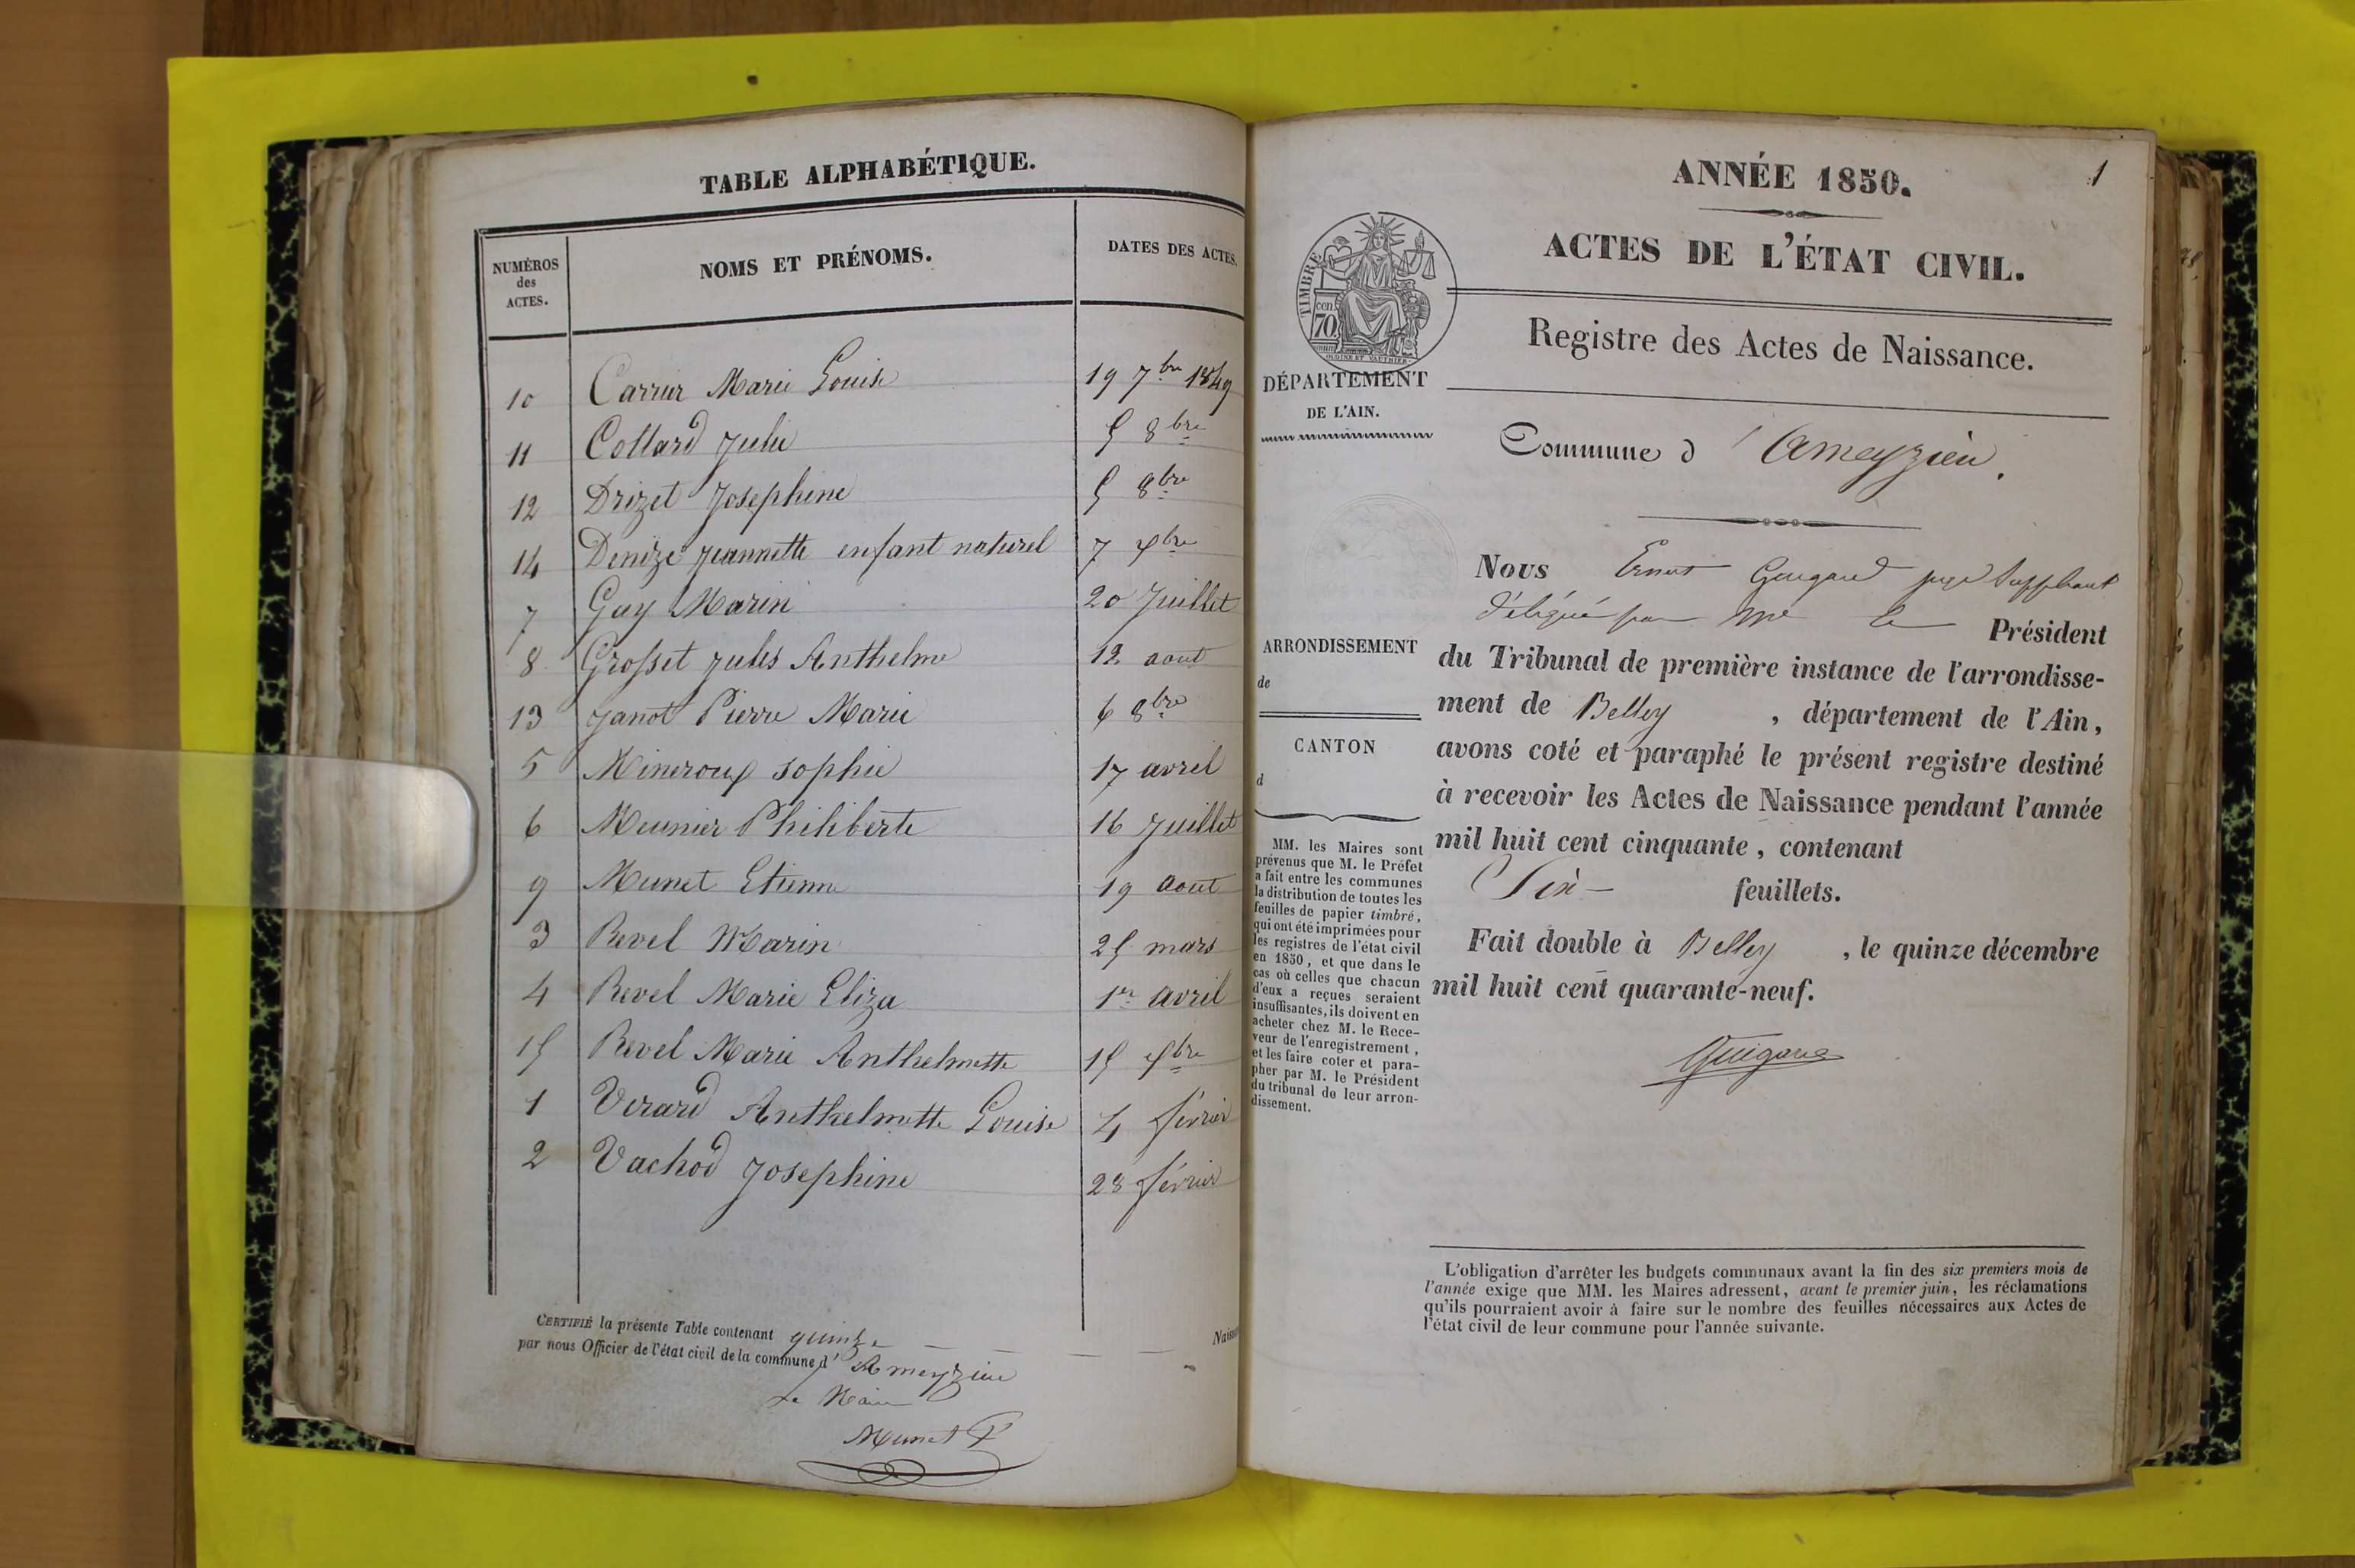 TABLE ALPHABÉTIQUE.
NUMÉROS
des
ACTES.
NOMS ET PRÉNOMS.
DATES DES ACTES.
10 Carrier Marie Louise 19 7bre 1849
11 Collard Julie 5 8bre
12 Drizet Josephine 5 8bre
14 Denize Jeannette enfant naturel 7 xbre
7 Guy Marin 20 Juillet
8 Grosset Jules Anthelme 12 aout
13 Janot Pierre Marie 6 8bre
5 Sophie 17 avril
6 Meunier Philiberte 16 Juillet
9 Munet Etienne 19 aout
3 Revel Marin 25 mars
4 Revel Marie Eliza 1er avril
15 Revel Marie Anthelmette 15 xbre
1 Verard Anthelmette Louise 4 février
2 Vachod Josephine 28 février
CERTIFIÉ la présente Table contenant quinze Naiss
par nous Officier de l'état civil de la commune d' Ameyzieu
Le Maire
Munet
1
ANNÉE 1850.
ACTES DE L'ÉTAT CIVIL.
Registre des Actes de Naissance.
TIMBRE
cen.
70
DÉPARTEMENT
DE L'AIN.
Commune d' Ameyzieu.
Nous Ernest juge Suppléant
délégué par Mr le Président
du Tribunal de première instance de l'arrondisse-
ment de Belley, département de l'Ain,
avons coté et paraphé le présent registre destiné
à recevoir les Actes de Naissance pendant l'année
mil huit cent cinquante, contenant
Six feuillets.
Fait double à Belley, le quinze décembre
mil huit cent quarante-neuf.
ARRONDISSEMENT
de
CANTON
d
MM. les Maires sont
prévenus que M. le Préfet
a fait entre les communes
la distribution de toutes les
feuilles de papier timbré,
qui ont été imprimées pour
les registres de l'état civil
en 1850, et que dans le
cas où celles que chacun
d'eux a reçues seraient
insuffisantes, ils doivent en
acheter chez M. le Rece-
veur de l'enregistrement,
et les faire coter et para-
pher par M. le Président
du tribunal de leur arron-
dissement.
L'obligation d'arrêter les budgets communaux avant la fin des six premiers mois de
l'année exige que MM. les Maires adressent, avant le premier juin, les réclamations
qu'ils pourraient avoir à faire sur le nombre des feuilles nécessaires aux Actes de
l'état civil de leur commune pour l'année suivante.